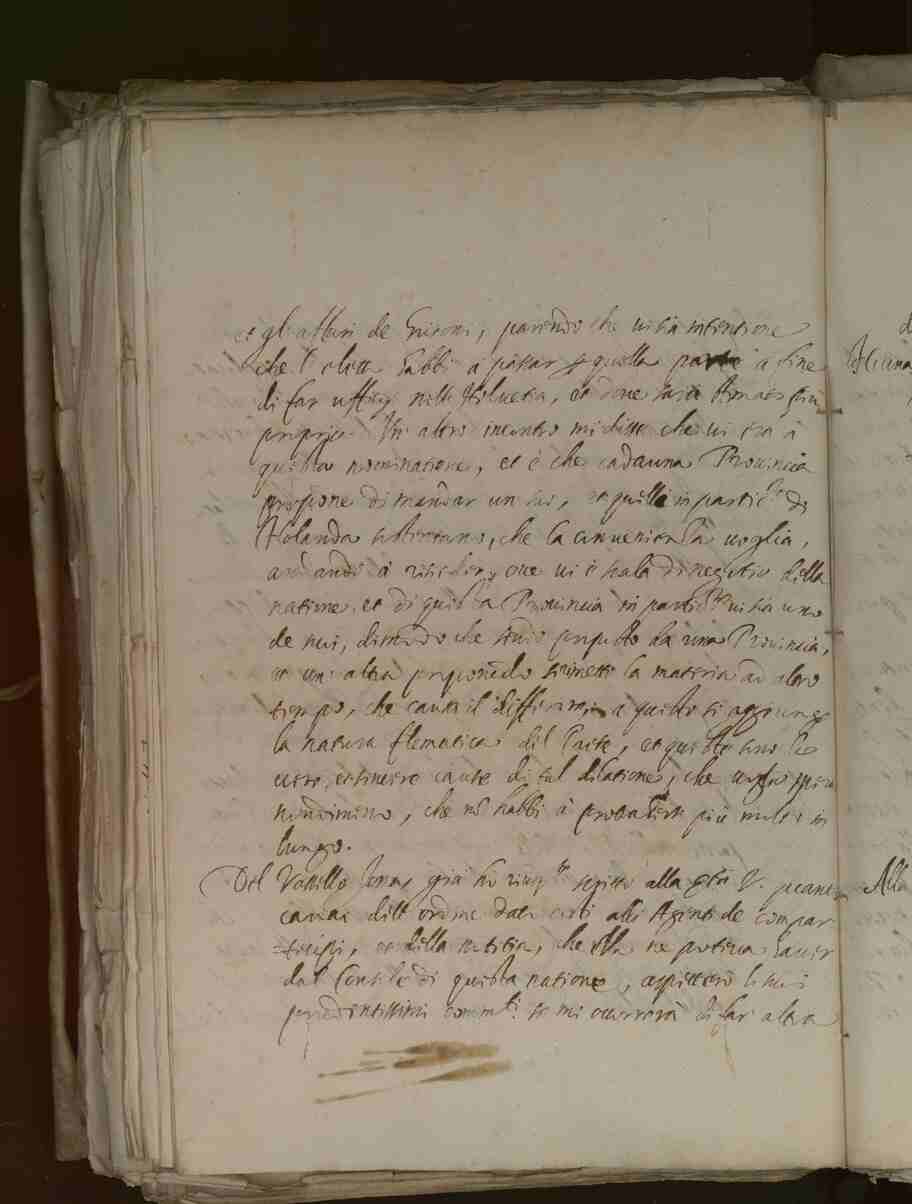 et gli affari de Grisoni, parendo che vi sia intentione
che l'eletto habbi à passar per quella parte à fine
di far ufficij nell'Helvetia, et dove sarà
proprio. Un altro incontro mi disse che vi era à
questa nominatione, et è che cadauna Provincia
propone di mandar un suo, et quella in partic.re di
Holanda, che la convenienza voglia,
andando à risieder ove vi è scala di negotio della
natione, et di questa Provincia in partic.re vi sia uno
de suoi, di modo che sendo proposto da una Provincia,
et un altra proponendo rimette la materia ad altro
tempo, che causa il differire, à questo si aggiunge
la natura flematica del Paese, et queste sono le
vere, et sincere cause di tal dilatione, che voglio sperar
nondimeno, che nō habbi à più molto in
lungo.
Del Vassello Jonas già hò scritto alla Ser.tà V.
causa dell'ordine dati alli Agenti de compar-
tecipi, et della notitia, che Ella ne poteva haver
dal Console di questa natione, aspetterò li suoi
prudentissimi comm.ti se mi occorrerà di far altra